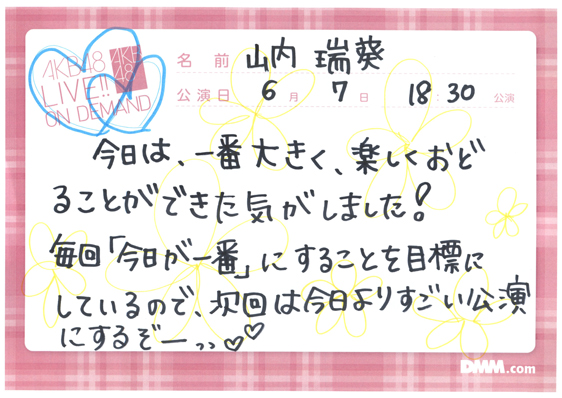 AKB48
LIVE!!
ON DEMAND
AKB
48
名前 山内 瑞葵
公演日 6月 7日 18:30 公演
今日は、一番大きく、楽しくおど
ることができた気がしました!
毎回「今日が一番」にすることを目標に
しているので、次回は今日よりすごい公演
にするぞー、、♡♡
DMM.com